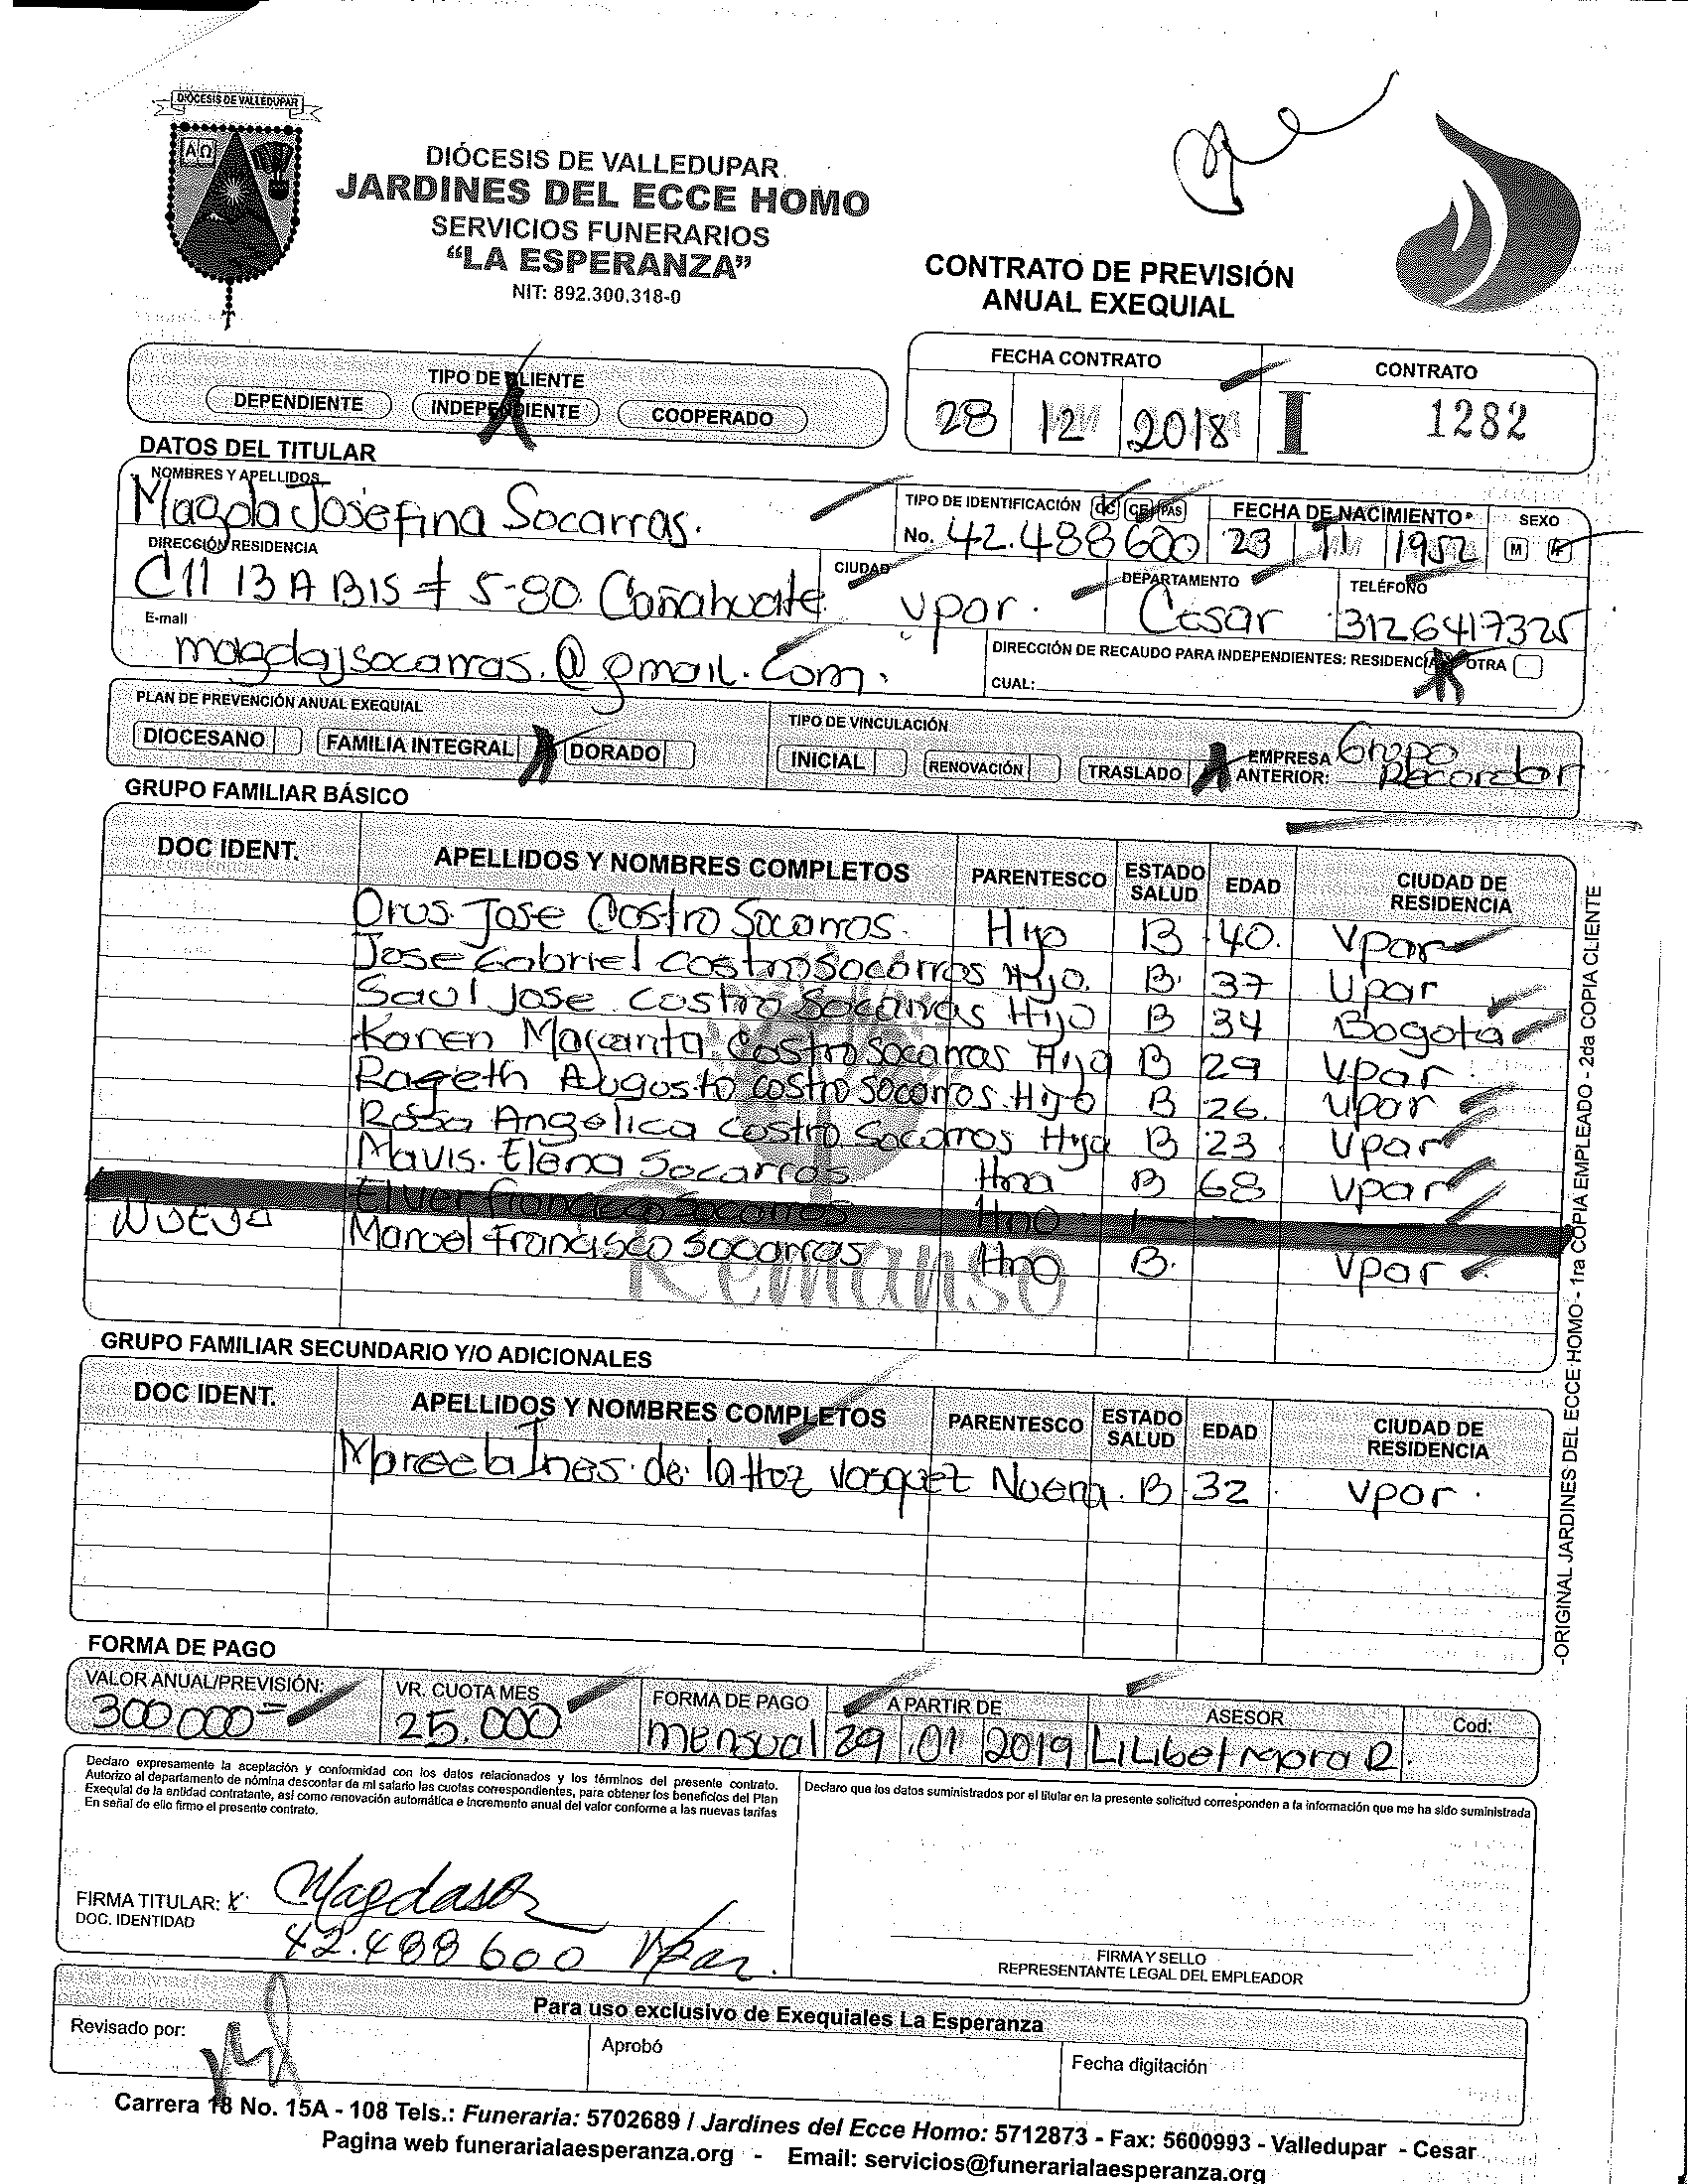 DIÓCESIS DE VALLEDUPAR
ΑΩ
DIÓCESIS DE VALLEDUPAR
JARDINES DEL ECCE HOMO
SERVICIOS FUNERARIOS
“LA ESPERANZA”
NIT: 892.300.318-0
CONTRATO DE PREVISIÓN
ANUAL EXEQUIAL
TIPO DE CLIENTE
DEPENDIENTE INDEPENDIENTE COOPERADO
FECHA CONTRATO CONTRATO
28 12 2018 I 1282
DATOS DEL TITULAR
NOMBRES Y APELLIDOS
Magda Josefina Socarras.
TIPO DE IDENTIFICACIÓN CC CE PAS FECHA DE NACIMIENTO SEXO
No. 42.488600 23 11 1952 M F
DIRECCIÓN RESIDENCIA CIUDAD DEPARTAMENTO TELÉFONO
Cll 13 A BIS # 5-80 Cañahuate Vpar. Cesar 3126417325
E-mail
magdajsocarras.@gmail.com.
DIRECCIÓN DE RECAUDO PARA INDEPENDIENTES: RESIDENCIA OTRA
CUAL:
PLAN DE PREVENCIÓN ANUAL EXEQUIAL TIPO DE VINCULACIÓN
DIOCESANO FAMILIA INTEGRAL DORADO INICIAL RENOVACIÓN TRASLADO EMPRESA ANTERIOR: Grupo Recordar
GRUPO FAMILIAR BÁSICO
DOC IDENT. APELLIDOS Y NOMBRES COMPLETOS PARENTESCO ESTADO SALUD EDAD CIUDAD DE RESIDENCIA
Jose Castro Socarras. Hijo B 40. Vpar
Jose Gabriel Castro Socarras Hijo. B. 37 Vpar
Saul Jose Castro Socarras Hijo B 34 Bogota
Karen Castro Socarras Hija B 29 Vpar
Augusto Castro Socarras. Hijo B 26. Vpar
Rosa Angelica Castro Socarras Hija B 23 Vpar
Mavis. Elena Socarras Hna B 68 Vpar
Elver Francisco Socarras Hno
Nuevo Manoel Francisco Socarras Hno B. Vpar
Remanso
GRUPO FAMILIAR SECUNDARIO Y/O ADICIONALES
DOC IDENT. APELLIDOS Y NOMBRES COMPLETOS PARENTESCO ESTADO SALUD EDAD CIUDAD DE RESIDENCIA
Marcela Ines de la Hoz Vasquez Nuera. B 32 Vpar.
FORMA DE PAGO
VALOR ANUAL/PREVISIÓN: VR. CUOTA MES FORMA DE PAGO A PARTIR DE ASESOR Cod:
300000= 25.000 mensual 29 01 2019 Lilibet Mora R.
Declaro expresamente la aceptación y conformidad con los datos relacionados y los términos del presente contrato.
Autorizo al departamento de nómina descontar de mi salario las cuotas correspondientes, para obtener los beneficios del Plan
Exequial de la entidad contratante, así como renovación automática e incremento anual del valor conforme a las nuevas tarifas
En señal de ello firmo el presente contrato.
Declaro que los datos suministrados por el titular en la presente solicitud corresponden a la información que me ha sido suministrada
FIRMA TITULAR: X
DOC. IDENTIDAD
42.488600 Vpar.
FIRMA Y SELLO
REPRESENTANTE LEGAL DEL EMPLEADOR
Para uso exclusivo de Exequiales La Esperanza
Revisado por: Aprobó Fecha digitación
Carrera 18 No. 15A - 108 Tels.: Funeraria: 5702689 / Jardines del Ecce Homo: 5712873 - Fax: 5600993 - Valledupar - Cesar
Pagina web funerarialaesperanza.org - Email: servicios@funerarialaesperanza.org
-ORIGINAL JARDINES DEL ECCE HOMO - 1ra COPIA EMPLEADO - 2da COPIA CLIENTE